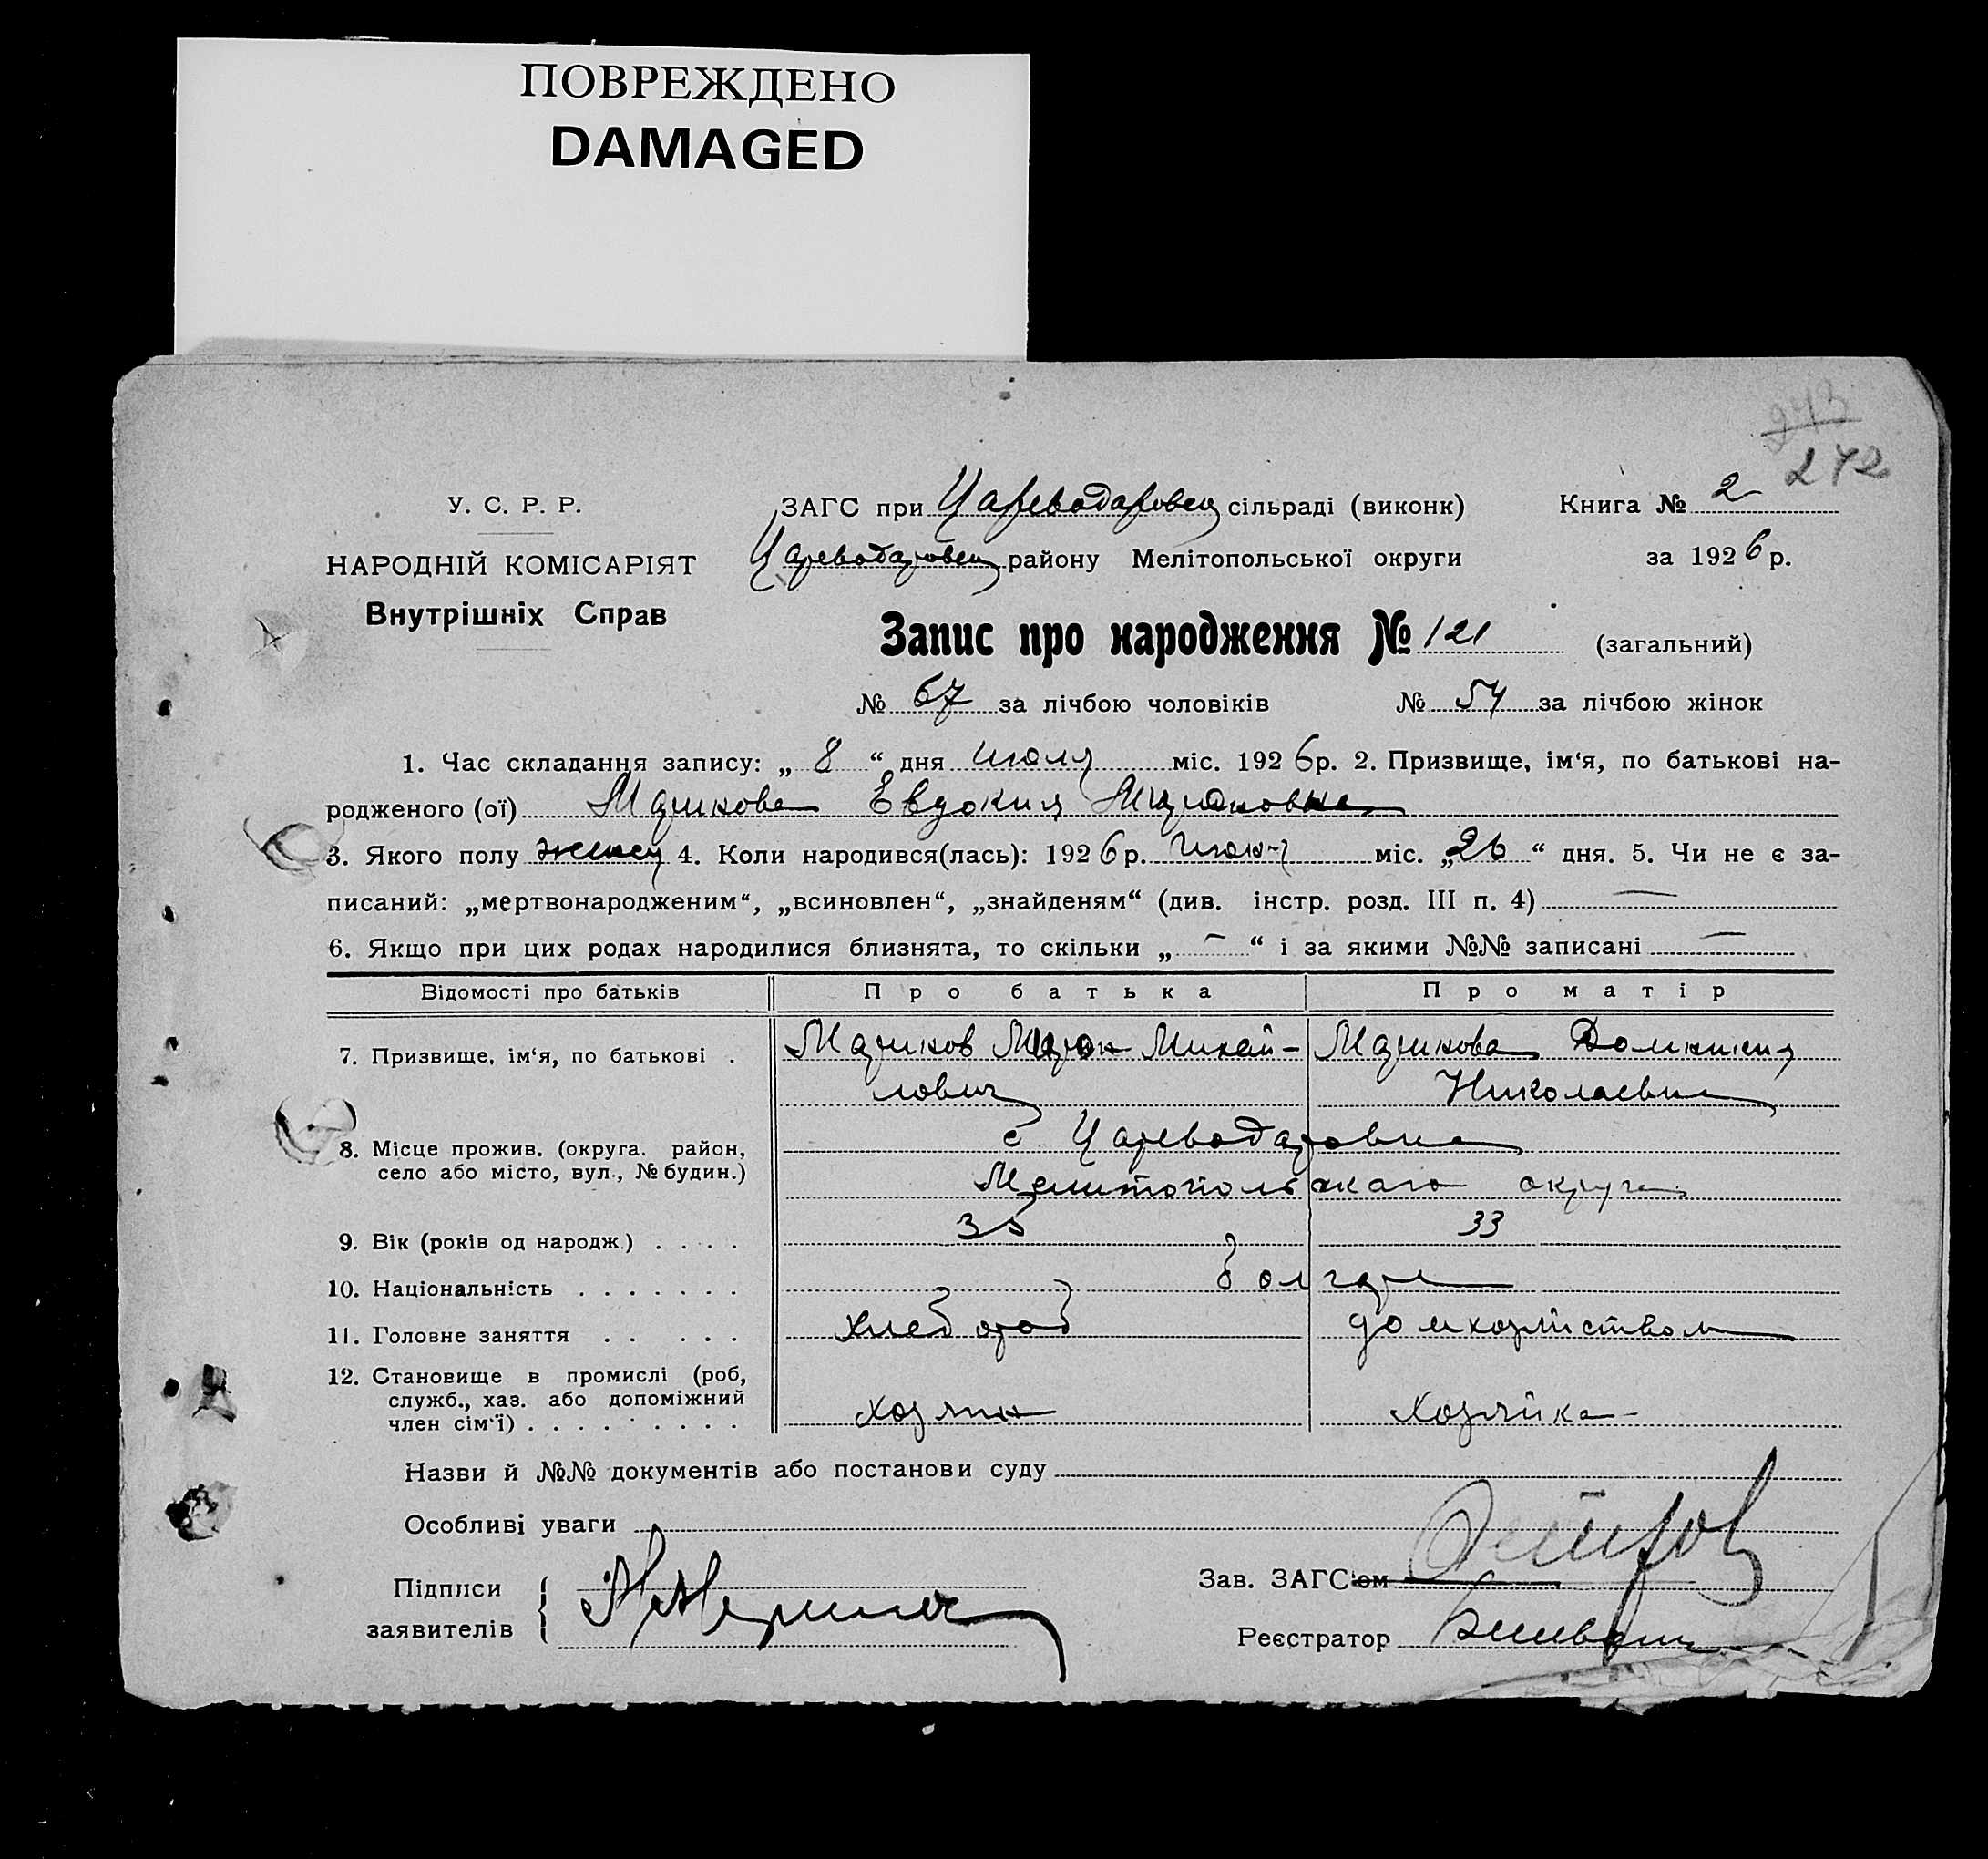 ПОВРЕЖДЕНО
DAMAGED
273
272
У. С. Р. Р.
НАРОДНІЙ КОМІСАРІЯТ
Внутрішніх Справ
ЗАГС при Цареводаровск сільраді (виконк)
Книга № 2
Цареводаровск району Мелітопольської округи
за 1926 р.
Запис про народження № 121 (загальний)
№ 67 за лічбою чоловіків № 54 за лічбою жінок
1. Час складання запису: „ 8 “ дня июля міс. 1926 р. 2. Призвище, ім‘я, по батькові на-
родженого (ої) Маринова Евдокия Мироновна
3. Якого полу женск 4. Коли народився(лась): 1926 р. міс. „26“ дня. 5. Чи не є за-
писаний: „мертвонародженим“, „всиновлен“, „знайденям“ (див. інстр. розд. III п. 4) —
6. Якщо при цих родах народилися близнята, то скільки „ — “ і за якими №№ записані —
Відомості про батьків Про батька Про матір
7. Призвище, ім‘я, по батькові . Мирон Михай- Домникия
лович Николаевна
с Цареводаровка
8. Місце прожив. (округа. район,
село або місто, вул., № будин.)
Мелитопольскаго округа
9. Вік (років од народж.) . . . . 35 33
10. Національність . . . . . . . болгаре
11. Головне заняття . . . . . хлебороб домхозяйством
12. Становище в промислі (роб,
служб., хаз. або допоміжний
член сім‘ї) . . . . . . . . . хозяин хозяйка
Назви й №№ документів або постанови суду
Особливі уваги
Підписи
заявителів
Зав. ЗАГС‘ом
Реєстратор